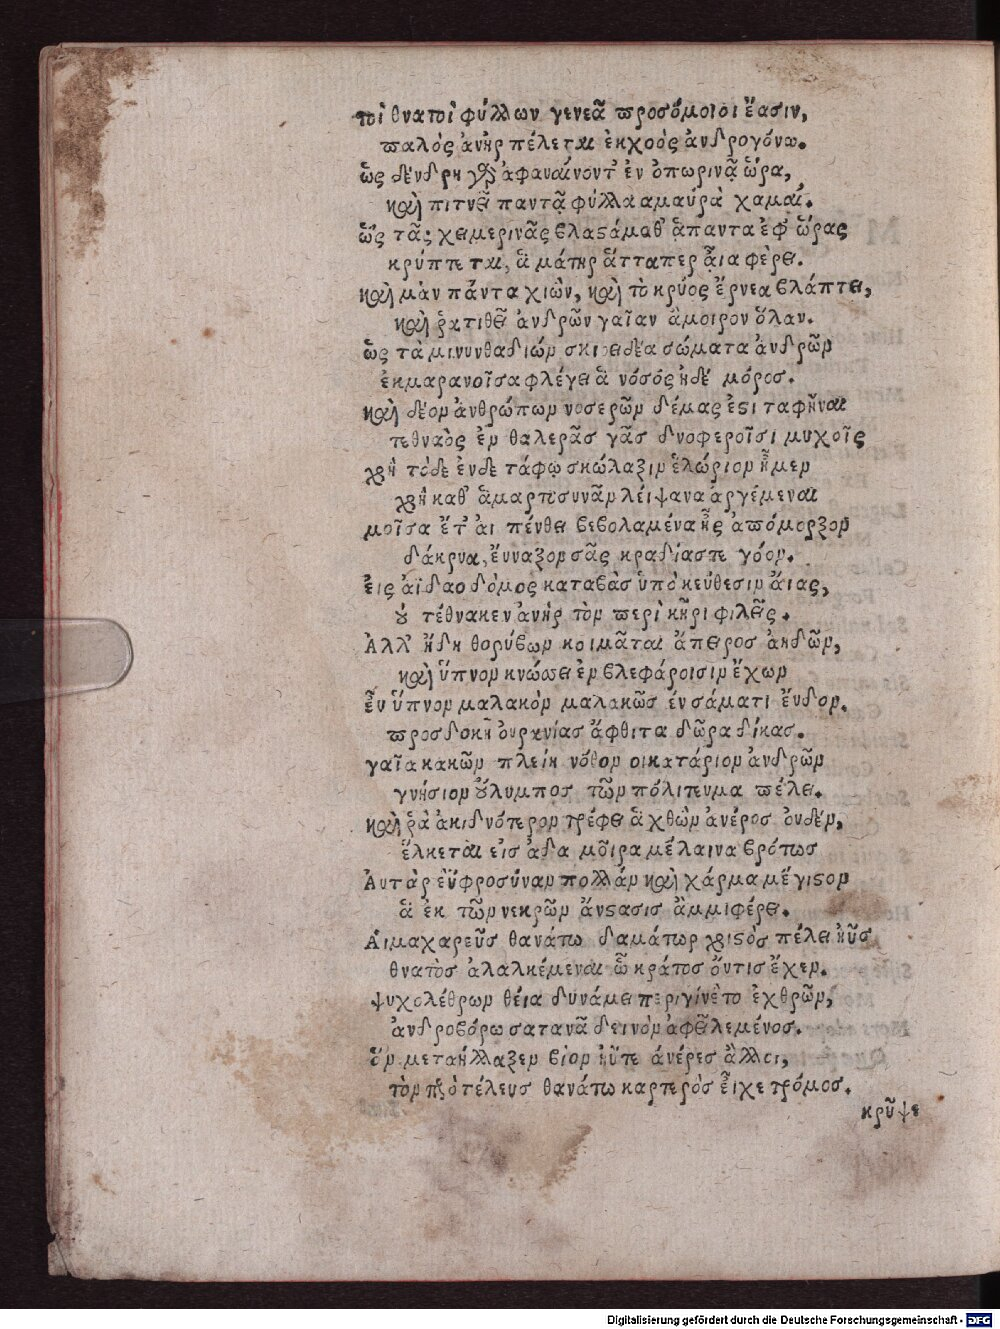 τοὶ θνατοὶ φύλλων γενεᾶ προσόμοιοι ἔασιν,
παλὸς ἀνὴρ πέλεται ἐκχοὸς ἀνδρογόνω.
ὣς δένδρη γὰρ ἀφαυαίνοντ' ἐν ὀπωρινᾷ ὥρᾳ,
καὶ πιτνεῖ παντᾷ φύλλα αμαύρὰ χαμαί.
ὣς τᾶς χειμερινᾶς βλαστάμαθ' ἅπαντα ἐφ' ὥρας
κρύπτεται, ἃ μάτηρ ἅτταπερ αἶα φέρει.
καὶ μὰν πάντα χιὼν, καὶ τὸ κρύος ἔρνεα βλάπτει,
καὶ ῥα τιθεῖ ἀνδρῶν γαῖαν ἄμοιρον ὅλαν.
ὣς τὰ μινυνθαδιών σκιοειδέα σώματα ἀνδρῶν
ἐκμαρανοῖσα φλέγει ἁ νόσός ἠδέ μόρος.
καὶ δέον ἀνθρώπων νοσερῶν δέμας ἐστὶ ταφῆναι
τεθναὸς ἐν θαλερᾶς γᾶς δνοφεροῖσι μυχοῖς
χρὴ τόδε ἐνδε τάφῳ σκώλαξιν ἑλώριον ἦμεν
χρὴ καθ' ἁμαρτοσυνᾶν λείψανα ἀργέμεναι
μοῖσα ἔτ' ἀι πένθει βεβολαμένα ᾖς ἀπόμορξον
δάκρυα, ἔυναξον σᾶς κραδίας τε γόον.
ἐις ἀΐδαο δόμος καταβὰς ὑπὸ κεύθεσιν ἄιας,
ὀυ τέθνακεν ἀνὴρ τὸν περὶ κῆρι φιλεῖς.
Ἀλλ' ἤδη θορύβων κοιμᾶται ἄπειρος ἀηδῶν,
καὶ ὕπνον κνώσσει ἐν βλεφάροισιν ἔχων
ἐν ὕπνον μαλακὸν μαλακῶς ἐν σάματι ἔυδον.
προσδοκῇ ὀυρανίας ἄφθιτα δῶρα δίκας.
γαῖα κακῶν πλείη νόθον οικατάριον ἀνδρῶν
γνήσιον ὄυλυμπος τῶν πόλιτευμα πέλει.
καὶ ῥὰ ἀκιδνότερον τρέφει ἁ χθὼν ἀνέρος ὀυδέν,
ἕλκεται εἰς ἀδα μοῖρα μέλαινα βρότως
Ἀυτὰρ εὐφροσύναν πολλάν καὶ χάρμα μέγιστον
ἁ ἐκ τῶν νεκρῶν ἄνστασις ἄμμι φέρει.
Ἁιμαχαρεῦς θανάτω δαμάτωρ χριστὸς πέλει ηὖς
θνατὸς ἀλαλκέμεναι ὧ κράτος ὄυτις ἔχεν.
ψυχολέθρων θέια δυνάμει περιγίνετο ἐχθρῶν,
ἀνδροβόρω σατανᾶ δεινὸν ἀφειλεμένος.
ὃν μεταήλλαξεν βίον ἠύτε ἀνέρες ἄλλοι,
τὸν πρὸ τέλευς θανάτω καρτερὸς ἔιχε τρόμος.
κρῦψε
Digitalisierung gefördert durch die Deutsche Forschungsgemeinschaft - DFG